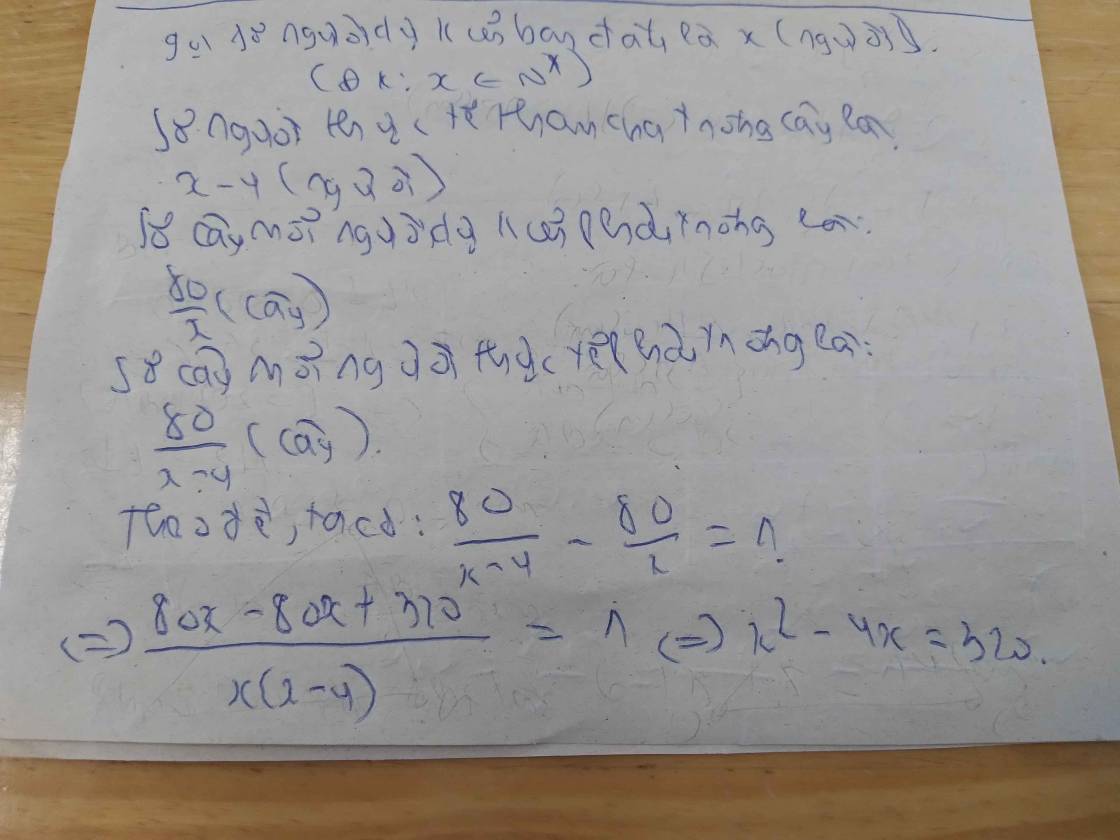 gọi số người dự kiến ban đầu là x (người).
(ĐK: x ∈ N*)
Số người thực tế tham cha trồng cây là.
x - 4 (người)
Số cây mỗi người dự kiến phải trồng là:
80/x (cây)
Số cây mỗi người thực tế phải trồng là:
80/(x-4) (cây).
Theo đề, ta có: 80/(x-4) - 80/x = 1.
<=> (80x - 80x + 320)/(x(x-4)) = 1 <=> x² - 4x = 320.